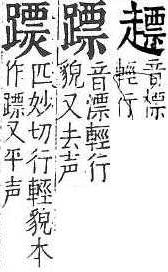 音漂
輕行
音漂輕行
貌又去声
匹妙切行輕貌本
作又平声